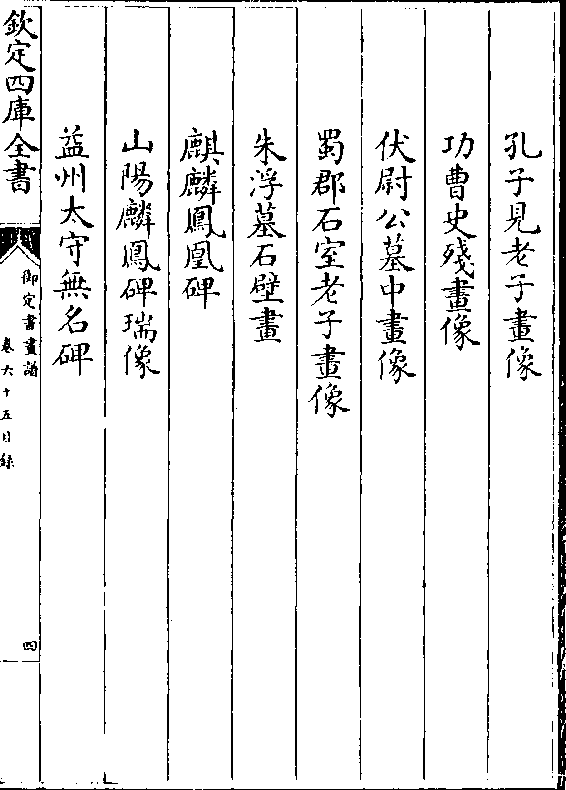 孔子見老子畫像
功曹史殘畫像
伏尉公墓中畫像
蜀郡石室老子畫像
朱浮墓石壁畫
麒麟鳳凰碑
山陽麟鳳碑瑞像
益州太守無名碑
欽定四庫全書
御定書畫譜
卷六十五目錄
四